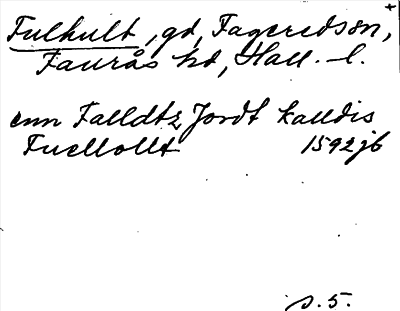 Fulhult, gd, Fageredssn,
Faurås hd, Hall. l.
enn Falldtz Jordt kalldis
Fuellollt 1592 jb
s. 5.